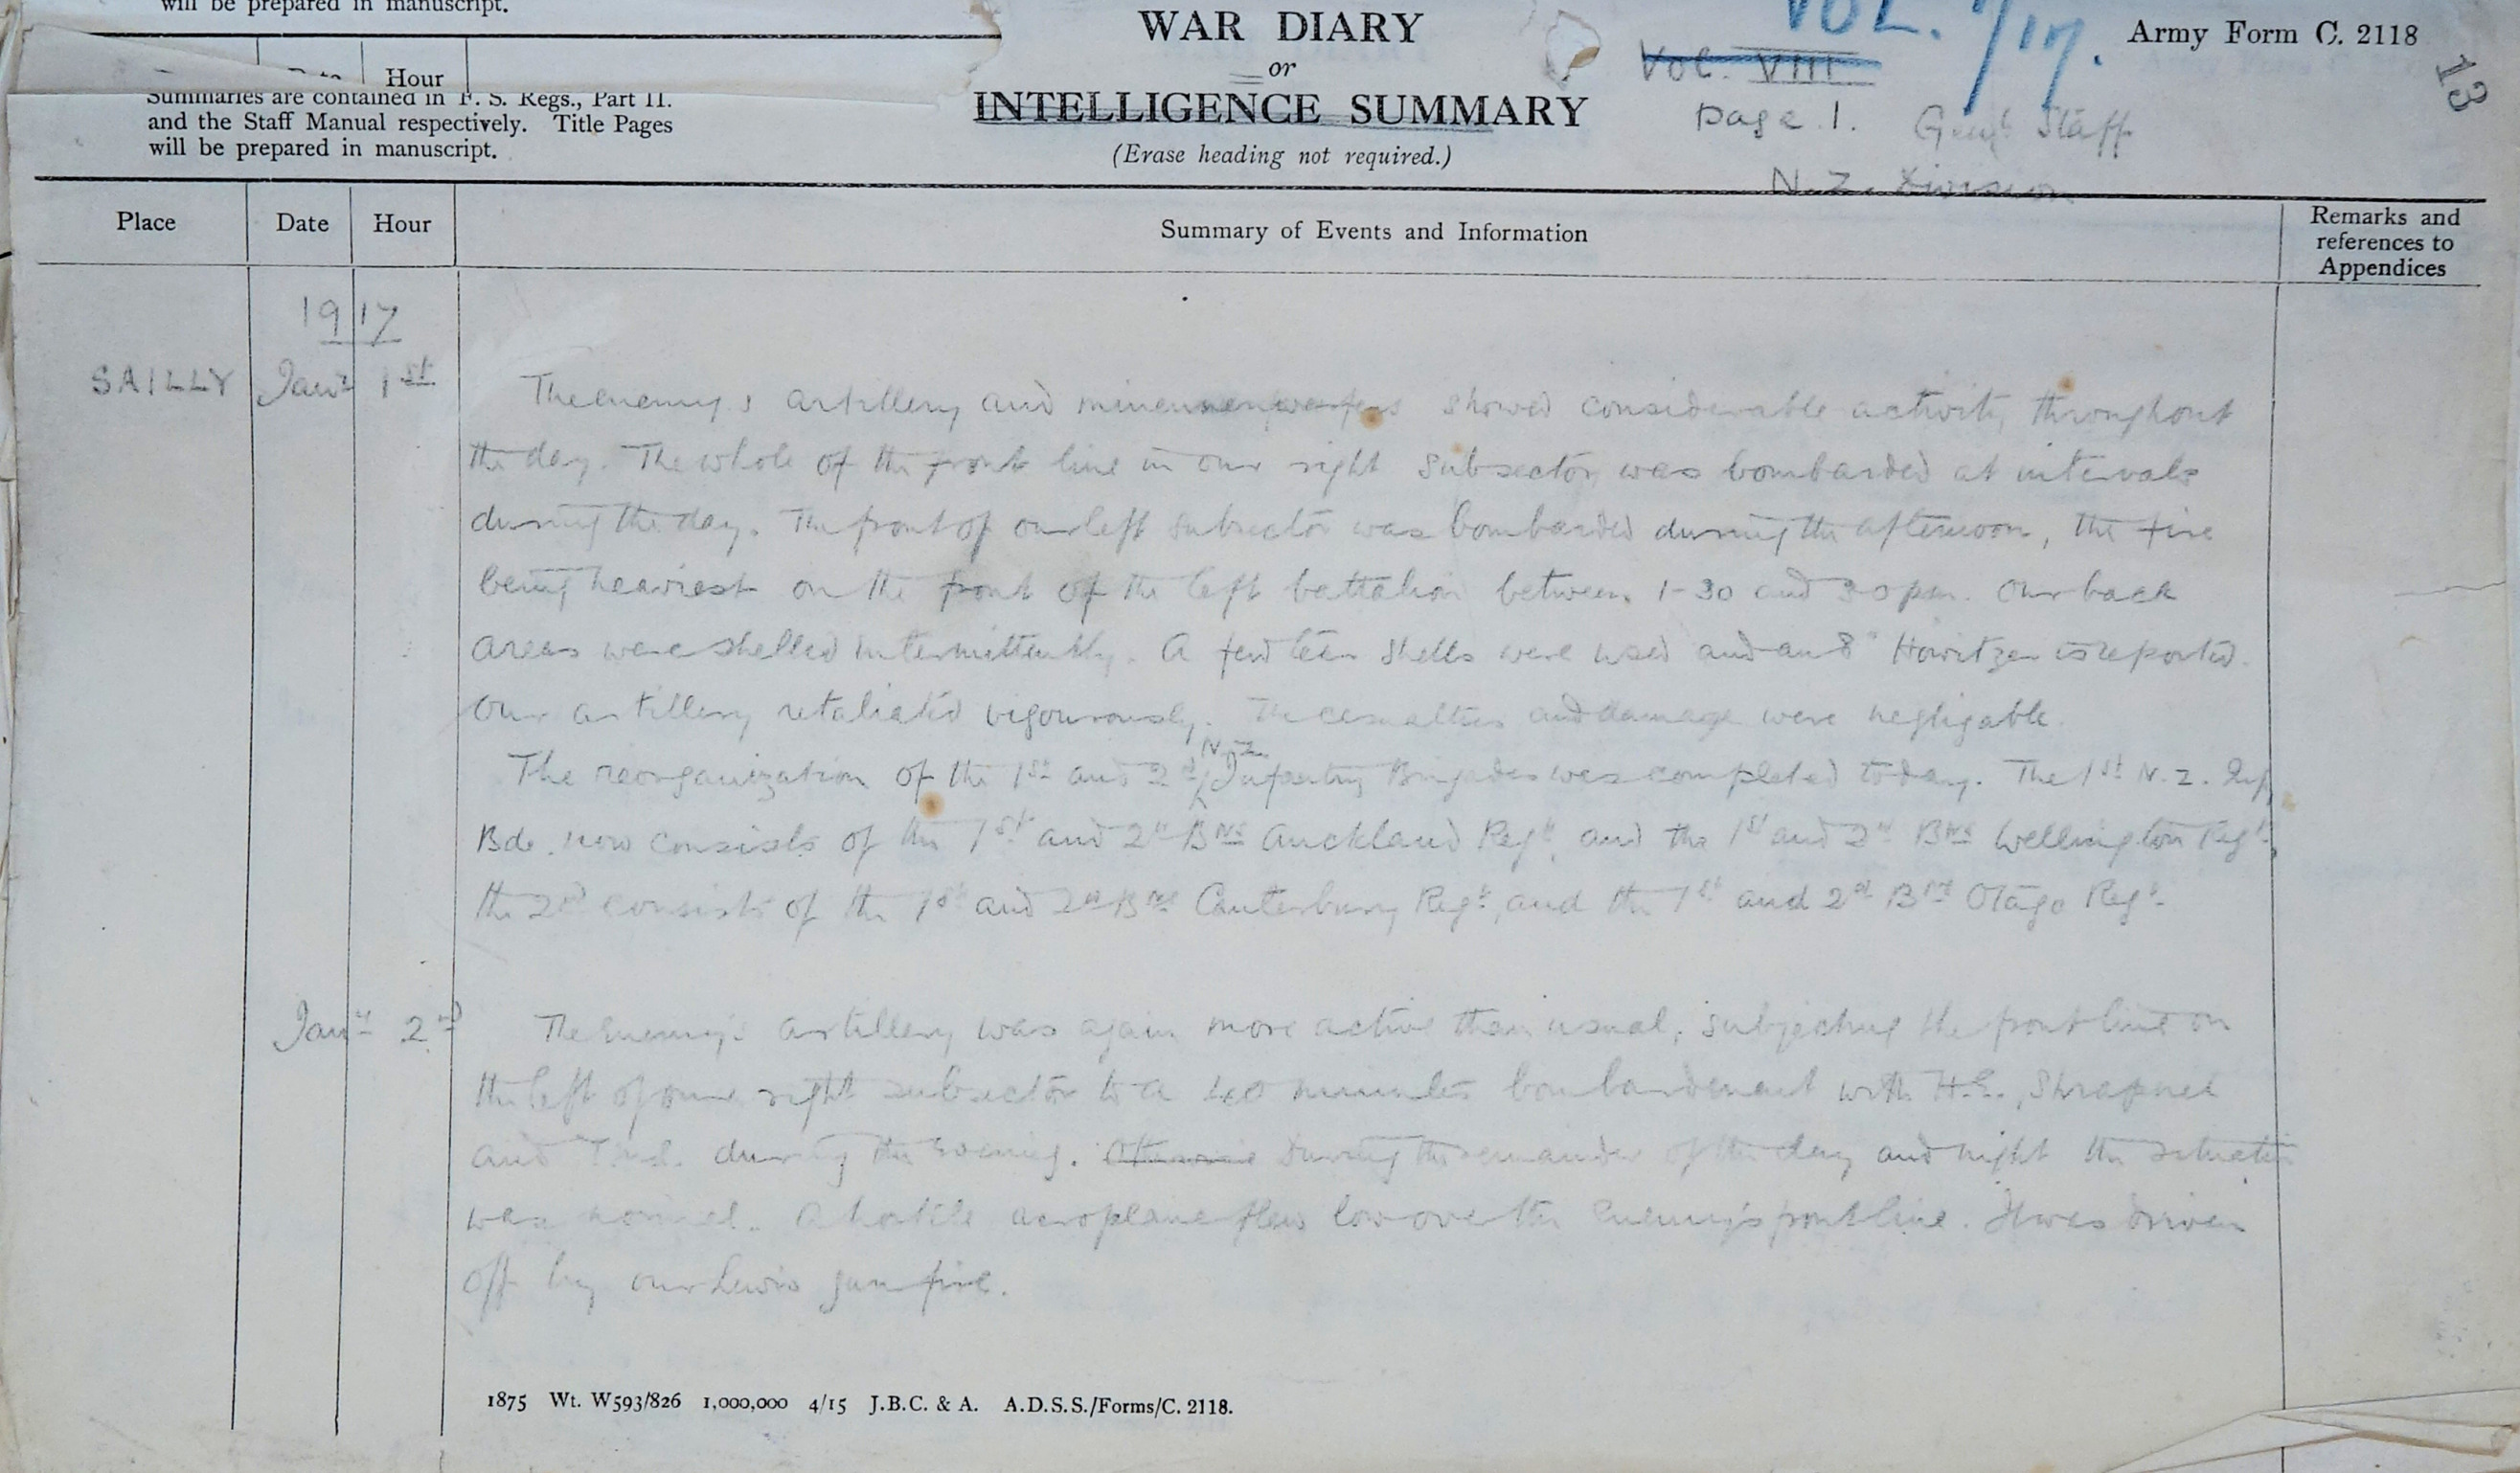 will be prepared in manuscript.
Hour
Summaries are contained in F. S. Regs., Part II.
and the Staff Manual respectively. Title Pages
will be prepared in manuscript.
WAR DIARY
or
INTELLIGENCE SUMMARY
(Erase heading not required.)
VOL. 1/17.
Vol. VIII
page 1. Genl Staff
N.Z. Division
Army Form C. 2118
13
Place Date Hour Summary of Events and Information Remarks and references to Appendices
1917
SAILLY Jany 1st
The enemy's artillery and minenwerfers showed considerable activity throughout
the day. The whole of the front line in our right subsector was bombarded at intervals
during the day. The front of our left subsector was bombarded during the afternoon, the fire
being heaviest on the front of the left battalion between 1-30 and 3-0 pm. Our back
areas were shelled intermittently. A few tear shells were used and an 8" Howitzer is reported.
Our artillery retaliated vigourously. The casualties and damage were negligable.
The reorganization of the 1st and 2nd N.Z. Infantry Brigades was completed today. The 1st N.Z. Inf
Bde. now consists of the 1st and 2nd Bns Auckland Regt, and the 1st and 2nd Bns Wellington Regt,
the 2nd consists of the 1st and 2nd Bns Canterbury Regt, and the 1st and 2nd Bns Otago Regt.
Jany 2nd
The Enemy's artillery was again more active than usual, subjecting the front line on
the left of our right subsector to a 40 minutes bombardment with H.E., Shrapnel
and T.M.s. during the evening. Otherwise During the remainder of the day and night the situation
was normal. A hostile aeroplane flew low over the Enemy's front line. It was driven
off by our Lewis gun fire.
1875 Wt. W593/826 1,000,000 4/15 J.B.C. & A. A.D.S.S./Forms/C. 2118.